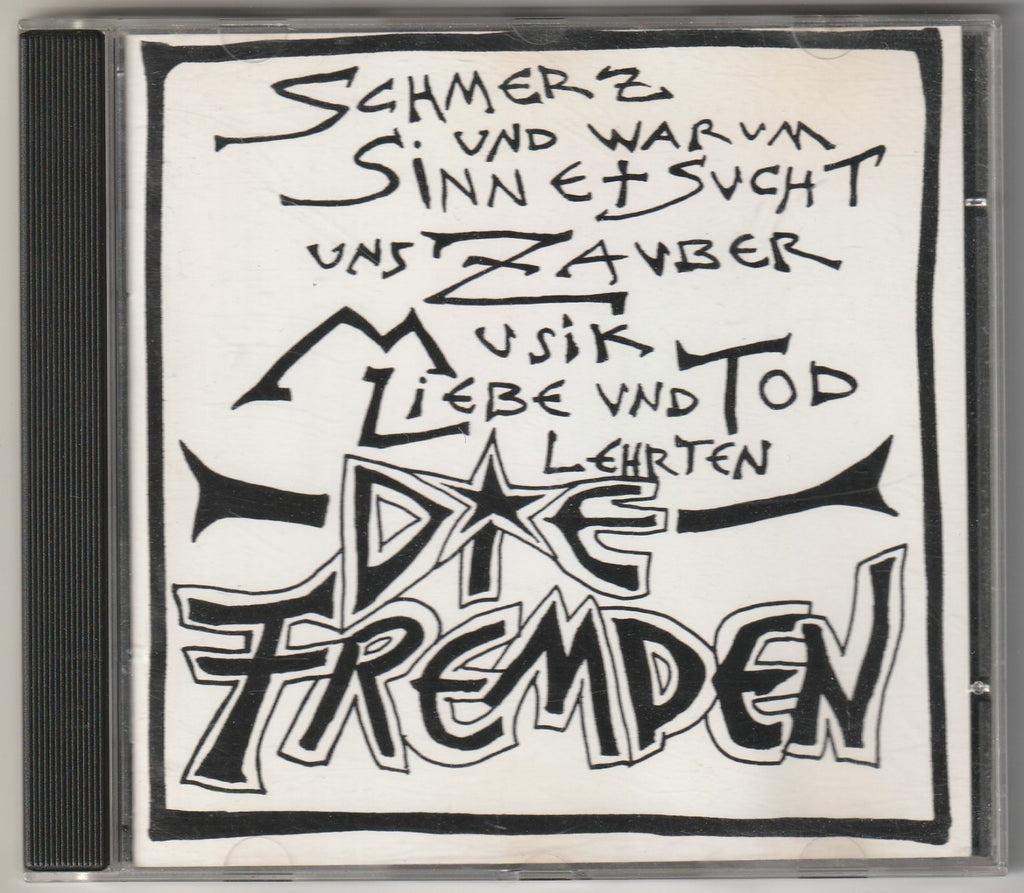 SCHMERZ
UND WARUM
SINN E+ SUCHT
UNS ZAUBER
MUSIK
LIEBE UND TOD
LEHRTEN
DIE
FREMDEN